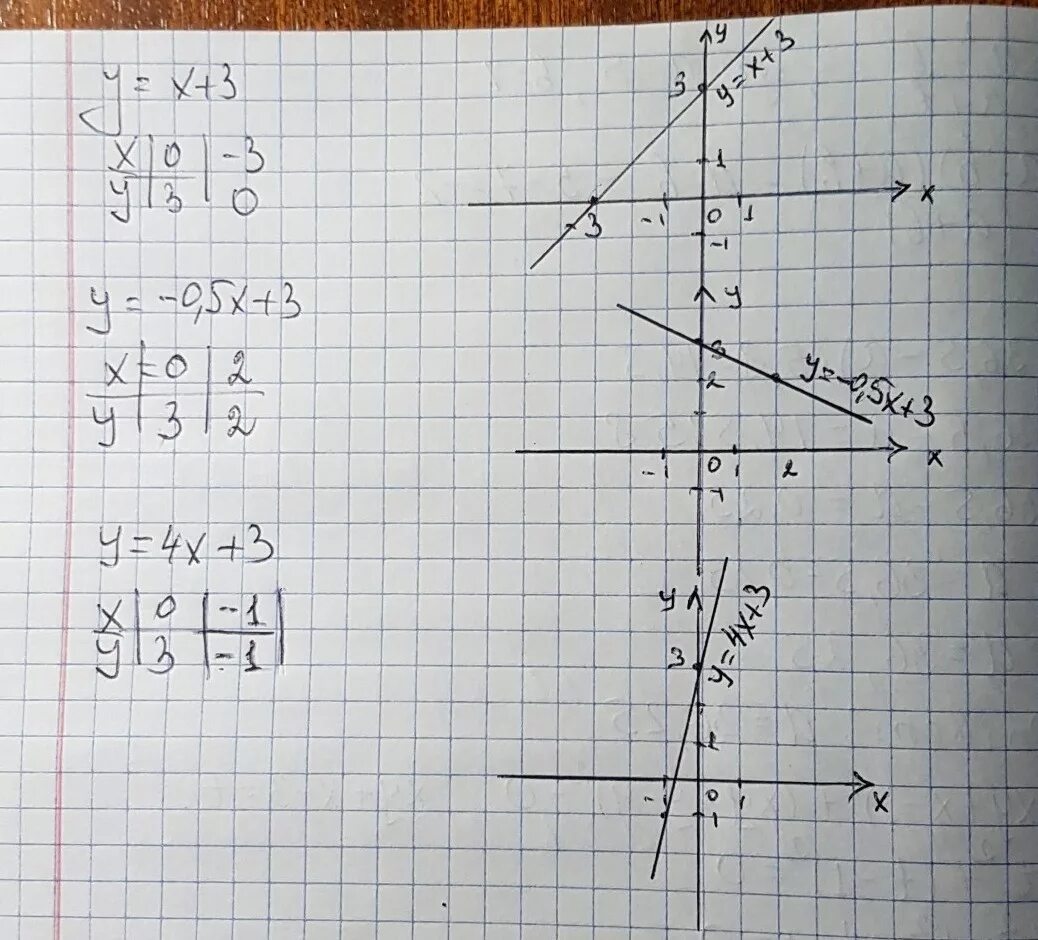 y = x+3
x | 0 | -3
y | 3 | 0
y = -0,5x+3
x | 0 | 2
y | 3 | 2
y = 4x+3
x | 0 | -1
y | 3 | -1
y
y=x+3
3
1
-3 -1 0 1 x
-1
y
3
2
y=-0,5x+3
-1 0 1 2 x
-1
y
y=4x+3
3
1
-1 0 1 x
-1